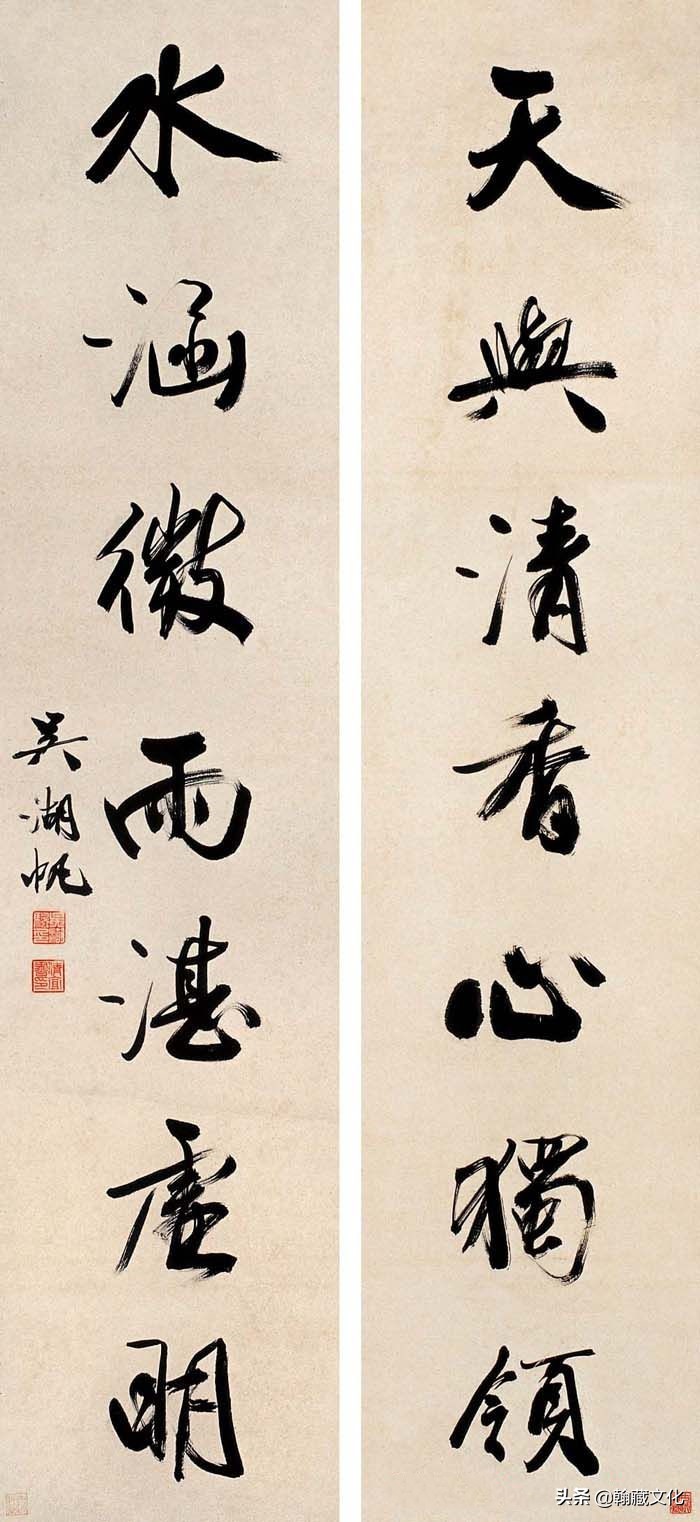 天與清香心獨領
水涵微雨湛虛明
吳湖帆
头条 @翰藏文化